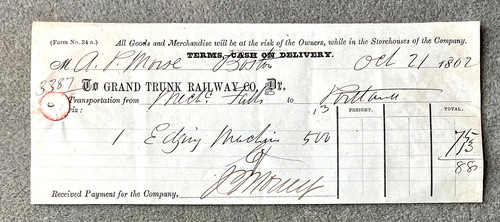 (Form No. 34 a.) All Goods and Merchandise will be at the risk of the Owners, while in the Storehouses of the Company.
TERMS, CASH ON DELIVERY.
M A. P. Morse Boston Oct 21 1862
3387
To GRAND TRUNK RAILWAY CO., Dr.
Transportation from Mech. Falls to Portland
Viz: 13 FREIGHT. TOTAL.
1 Edging Machine 500 75
13
88
Received Payment for the Company,